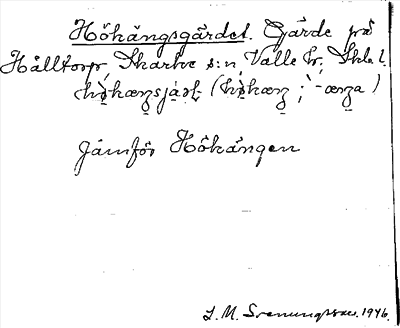 Höhängsgärdet. Gärde på
Hålltorp, Skarke s:n, Valle hd, Skbl.
Jämför Höhängen
S. M. Svenungsson. 1946.